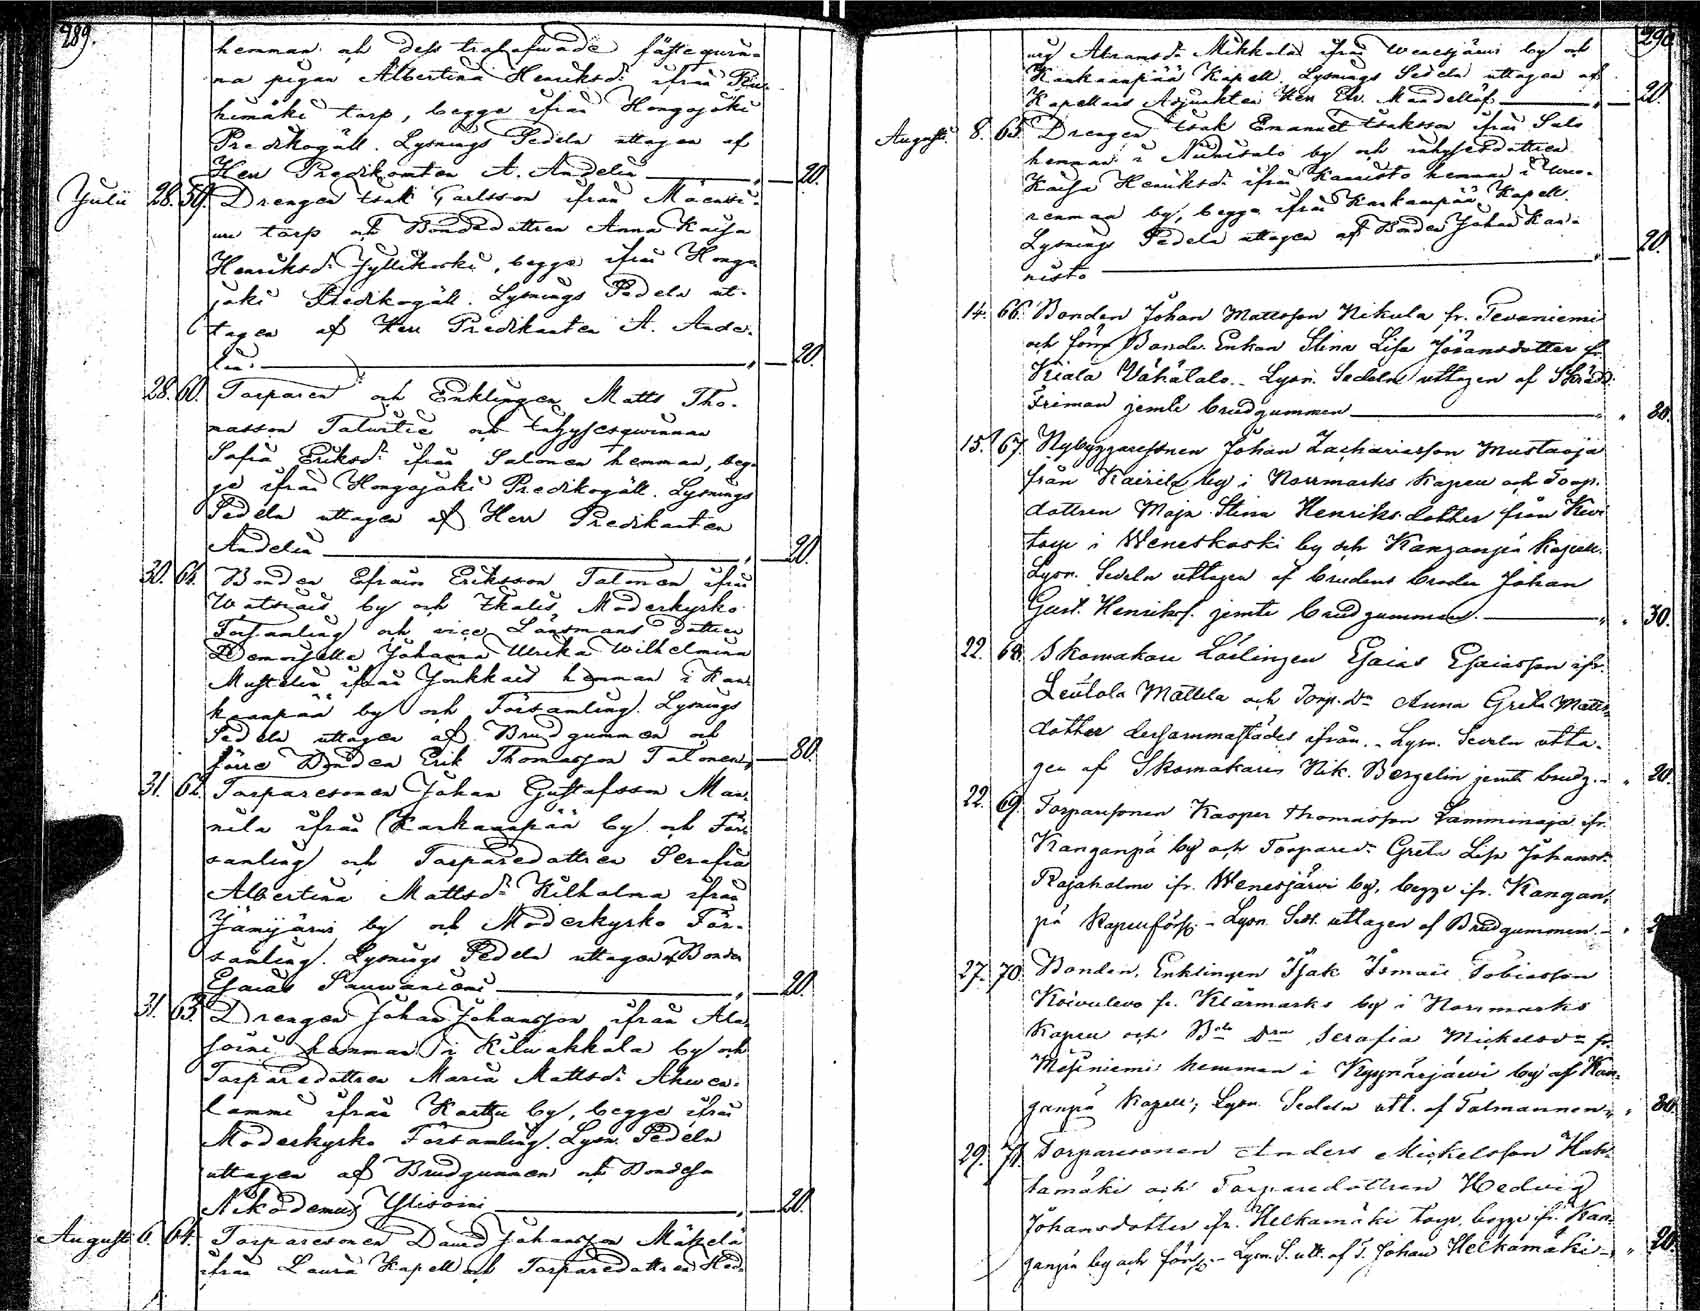 289.
hemman och dess trolofwade fästeqwin-
na pigan Albertina Henriksd:r ifrån
himäki torp, begge ifrån Hongojoki
Predikogäll. Lysnings Sedeln uttagen af
Herr Predikanten A. Andelin — 20.
Julii 28. 59. Drengen Isak Carlsson ifrån
torp och Bondedottren Anna Kaisa
Henriksd:r Jyllikoski, begge ifrån Hongo-
joki Predikogäll. Lysnings Sedeln ut-
tagen af Herr Predikanten A. Ande-
lin. — 20.
28. 60. Torparen och Enklingen Matts Tho-
masson och Inhysesqwinnan
Sofia Eriksd:r ifrån Salonen hemman, beg-
ge ifrån Hongojoki Predikogäll. Lysnings
Sedeln uttagen af Herr Predikanten
Andelin — 20.
30. 61. Bonden Efraim Eriksson Talonen ifrån
by och Ikalis Moderkyrko
Församling och vice Länsmans dottren
Demoiselle Johanna Ulrika Wilhelmina
Mustelin ifrån hemman i Kan-
kaanpää by och Församling. Lysnings
Sedeln uttagen af Brudgummen och
förre Bonden Erik Thomasson Talonen — 80.
31. 62. Torparesonen Johan Gustafsson Man-
nila ifrån Kankaanpää by och För-
samling och Torparedottren Serafia
Albertina Mattsd:r Kilholma ifrån
Jämijärvi by och Moderkyrko För-
samling. Lysnings Sedeln uttagen af Bonden
Esaias — 20.
31. 63. Drengen Johan Johansson ifrån Ala-
soini hemman i Kilwakkala by och
Torparedottren Maria Mattsd:r Ahwen-
lammi ifrån Karttu by, begge ifrån
Moderkyrko Församling. Lysn. Sedeln
uttagen af Brudgummen och Bondesn
Nikodemus Ylisoini — 20.
Augusti 6. 64. Torparesonen David Johansson Mäkelä
ifrån Laviä Kapell och Torparedottren Hed-
290
wig Abramsd:r Mikkola ifrån Wenesjärvi by och
Kankaanpää Kapell. Lysnings Sedeln uttagen af
Kapellans Adjunkten Herr Mandellöf — 20.
Augusti 8. 65. Drengen Isak Emanuel Isaksson ifrån Salo
hemman i Niinisalo by och inhysesdottren
Kaisa Henriksd:r ifrån Kaunisto hemman i
by, begge ifrån Kankaanpää Kapell.
Lysnings Sedeln uttagen af Bonden Johan Kau-
nisto — 20.
14. 66. Bonden Johan Mattsson Nikula fr. Pevoniemi
och förra Bonde Enkan Stina Lisa Johansdotter fr.
Kiala Vähätalo. Lysn. Sedeln uttagen af Skrädd:
Friman jemte brudgummen — 30.
15. 67. Nybyggaresonen Johan Zachariasson Mustaoja
från Kairila by i Norrmarks Kapell och Torp.
dottren Maja Stina Henriksdotter från Kivi
torp i Weneskoski by och Kangaspä Kapell.
Lysn. Sedeln uttagen af brudens broder Johan
Gust. Henrikss. jemte brudgummen. — 30.
22. 68. Skomakare Lärlingen Esaias Esaiasson ifr.
Leutola Mattila och Torp. D:r Anna Greta Matts-
dotter dersammastädes ifrån. Lysn. Sedeln utta-
gen af Skomakaren Nik. Bergelin jemte brudg. — 20.
22. 69. Torparesonen Kasper Thomasson Lamminoja ifr.
Kangaspä by och Torpared:r Greta Lisa Johansd:r
Rajaholma ifr. Wenesjärvi by, begge ifr. Kangas-
pä Kapellförs. — Lysn. Sed. uttagen af Brudgummen. —
27. 70. Bonden, Enklingen Isak Ismael Tobiasson
fr. Klåsmarks by i Norrmarks
Kapell och B:de D:ren Serafia Mickelsd:r fr.
hemman i Kyynärjärvi by af Kan-
gaspä Kapell; Lysn. Sedeln utt. af Talmannen — 30.
29. 71. Torparesonen Anders Mickelsson Hah-
tamäki och Torparedottren Hedvig
Johansdotter ifr. Helkamäki torp, begge ifr. Kan-
gaspä by och förs. — Lysn. S. utt. af T. Johan Helkamäki — 20.